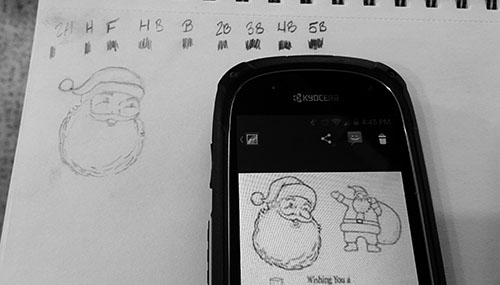 2H H F HB B 2B 3B 4B 5B
KYOCERA
4:45 PM
Wishing You a